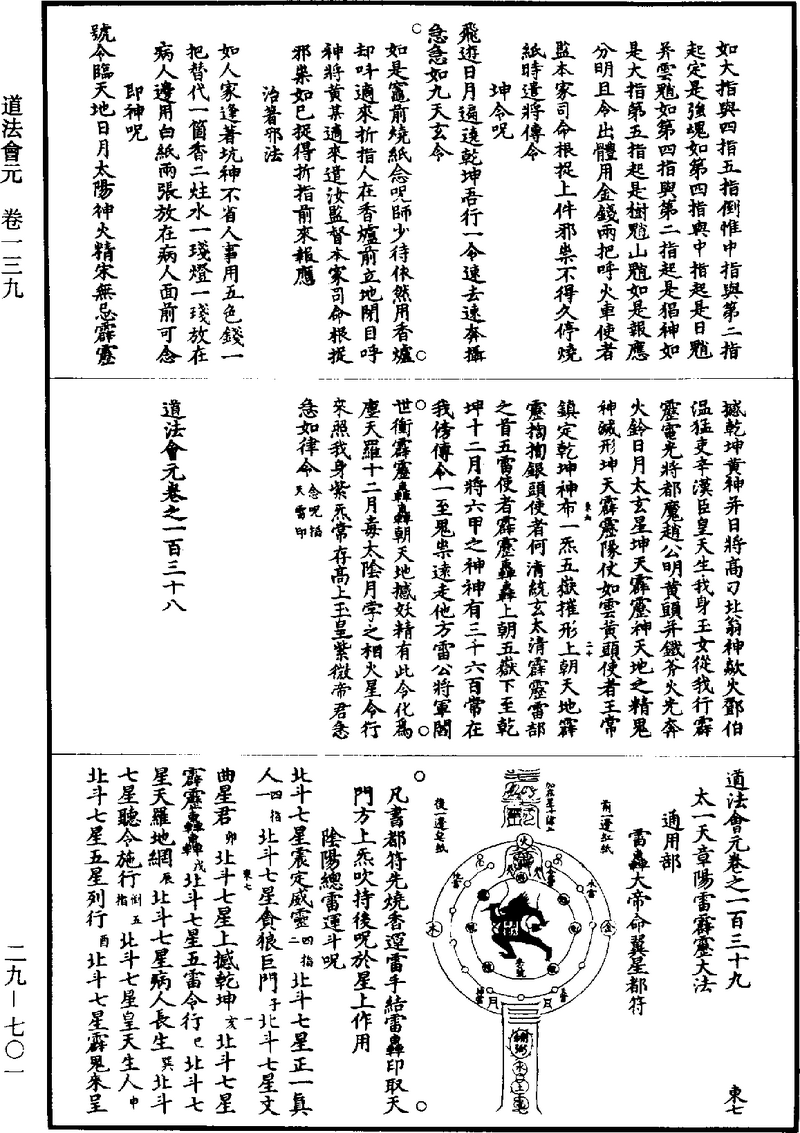 道法會元　卷一三九
二九—七〇一
如大指與四指五指倒惟中指與第二指
起定是強魂如第四指與中指起是日魈
并雲魈如第四指與第二指起是猖神如
是大指第五指起是樹魈山魈如是報應
分明且令出體用金錢兩把呼火車使者
監本家司命根捉上件邪祟不得久停燒
紙時遣將傳令
坤令呪
飛遊日月遍遶乾坤吾行一令速去速奔攝
急急如九天玄令
如是竈前燒紙念呪師少待依然用香爐
却呌適來折指人在香爐前立地閉目呼
神將黃某適來遣汝監督本家司命根捉
邪祟如已捉得折指前來報應
治著邪法
如人家逢著坑神不省人事用五色錢一
把替代一箇香二炷水一琖燈一琖放在
病人邊用白紙兩張放在病人面前可念
即神呪
號令臨天地日月太陽神火精宋無忌霹靂
撼乾坤黃神并日將高刁北翁神歘火鄧伯
溫猛吏辛漢臣皇天生我身玉女從我行霹
靂電光將都魔趙公明黃頭并鐵斧火先奔
火鈴日月太玄星坤天霹靂神天地之精鬼
神滅形坤天霹靂隊仗如雲黃頭使者王常
鎮定乾坤神布一炁五嶽摧形上朝天地霹
靂掏掏銀頭使者何清統玄太清霹靂雷部
之首五雷使者霹靂轟轟上朝五嶽下至乾
坤十二月將六甲之神神有三千六百常在
我傍傳令一至鬼祟遠走他方雷公將軍閻
世衡霹靂轟轟朝天地撼妖精有此令化爲
塵天羅十二月毒太陰月孛之相火星令行
來照我身紫炁常存高上玉皇紫微帝君急
急如律令念呪掐天雷印
道法會元卷之一百三十八
道法會元卷之一百三十九　東七
太一天章陽雷霹靂大法
通用部
雷轟大帝命翼星都符
前一邊紅紙
後一邊皂紙
凡書都符先燒香運雷手結雷轟印取天
門方上炁吹持後呪於星上作用
陰陽總雷運斗呪
北斗七星震定威靈二四指北斗七星正一真
人一四指北斗七星貪狼巨門子北斗七星文
曲星君卯北斗七星上撼乾坤亥北斗七星
霹靂轟轟戌北斗七星五雷令行巳北斗七
星天羅地網辰北斗七星病人長生巽北斗
七星聽令施行倒五指北斗七星皇天生人申
北斗七星五星列行酉北斗七星霹鬼來呈